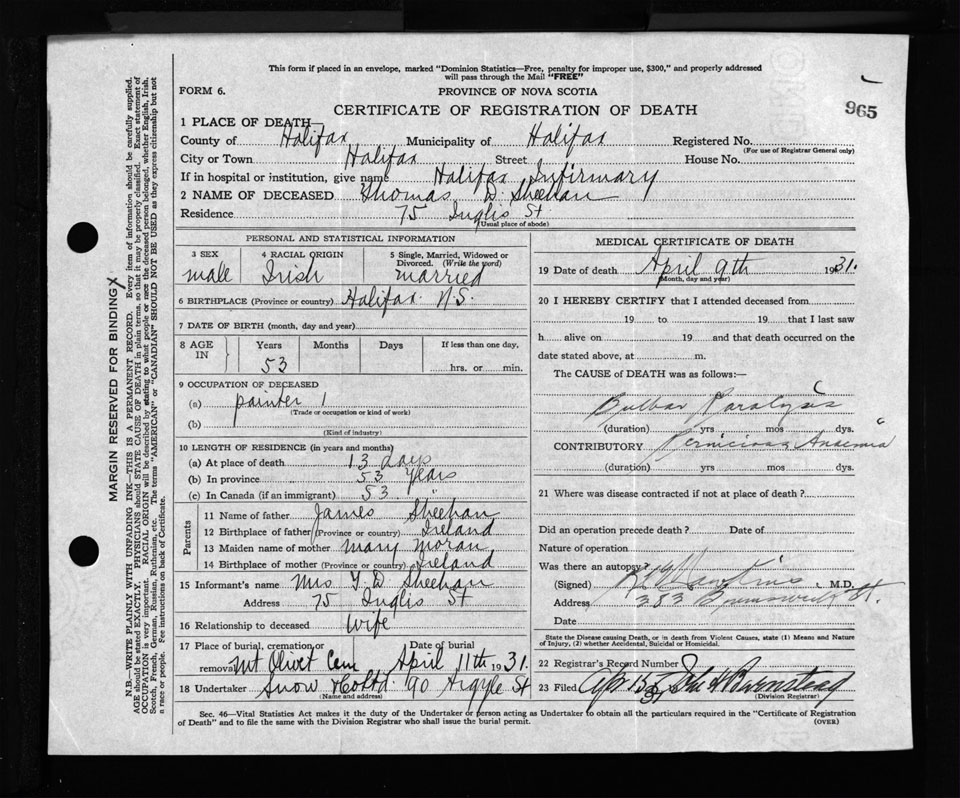 This form if placed in an envelope, marked "Dominion Statistics—Free, penalty for improper use, $300," and properly addressed
will pass through the Mail "FREE"
FORM 6.
PROVINCE OF NOVA SCOTIA
965
CERTIFICATE OF REGISTRATION OF DEATH
1 PLACE OF DEATH
County of Halifax Municipality of Halifax Registered No.
(For use of Registrar General only)
City or Town Halifax Street House No.
If in hospital or institution, give name Halifax Infirmary
2 NAME OF DECEASED Thomas D Sheehan
Residence 75 Inglis St
(Usual place of abode)
PERSONAL AND STATISTICAL INFORMATION
3 SEX 4 RACIAL ORIGIN 5 Single, Married, Widowed or
Divorced. (Write the word)
male Irish married
6 BIRTHPLACE (Province or country) Halifax N.S.
7 DATE OF BIRTH (month, day and year)
8 AGE IN Years Months Days If less than one day,
53 hrs. or min.
9 OCCUPATION OF DECEASED
(a) painter 1
(Trade or occupation or kind of work)
(b)
(Kind of industry)
10 LENGTH OF RESIDENCE (in years and months)
(a) At place of death 13 days
(b) In province 53 years
(c) In Canada (if an immigrant) 53 "
Parents
11 Name of father James Sheehan
12 Birthplace of father (Province or country) Ireland
13 Maiden name of mother Mary Moran
14 Birthplace of mother (Province or country) Ireland
15 Informant's name Mrs T. D Sheehan
Address 75 Inglis St
16 Relationship to deceased Wife
17 Place of burial, cremation or Date of burial
removal Mt Olivet Cem April 11th 1931.
18 Undertaker Snow & Co Ltd. 90 Argyle St
(Name and address)
MEDICAL CERTIFICATE OF DEATH
19 Date of death April 9th 1931.
(Month, day and year)
20 I HEREBY CERTIFY that I attended deceased from
19 to 19 that I last saw
h alive on 19 and that death occurred on the
date stated above, at m.
The CAUSE of DEATH was as follows:—
Bulbar Paralysis
(duration) yrs mos dys.
CONTRIBUTORY Pernicious Anaemia
(duration) yrs mos dys.
21 Where was disease contracted if not at place of death?
Did an operation precede death? Date of
Nature of operation
Was there an autopsy?
(Signed) Hawkins, M.D.
Address 353 Brunswick St.
Date
State the Disease causing Death, or in death from Violent Causes, state (1) Means and Nature
of Injury, (2) whether Accidental, Suicidal or Homicidal.
22 Registrar's Record Number
23 Filed Apr 13 31 John H Barnstead
(Division Registrar)
Sec. 46—Vital Statistics Act makes it the duty of the Undertaker or person acting as Undertaker to obtain all the particulars required in the "Certificate of Registration
of Death" and to file the same with the Division Registrar who shall issue the burial permit.
(OVER)
MARGIN RESERVED FOR BINDING X
N.B.—WRITE PLAINLY WITH UNFADING INK—THIS IS A PERMANENT RECORD. Every item of information should be carefully supplied.
AGE should be stated EXACTLY. PHYSICIANS should STATE CAUSE OF DEATH in plain terms, so that it may be properly classified. Exact statement of
OCCUPATION is very important. RACIAL ORIGIN will be described by stating to what people or race the deceased person belonged, whether English, Irish,
Scotch, French, German, Russian, Ruthenian, etc. The terms "AMERICAN" or "CANADIAN" SHOULD NOT BE USED as they express citizenship but not
a race or people. Fee instructions on back of Certificate.